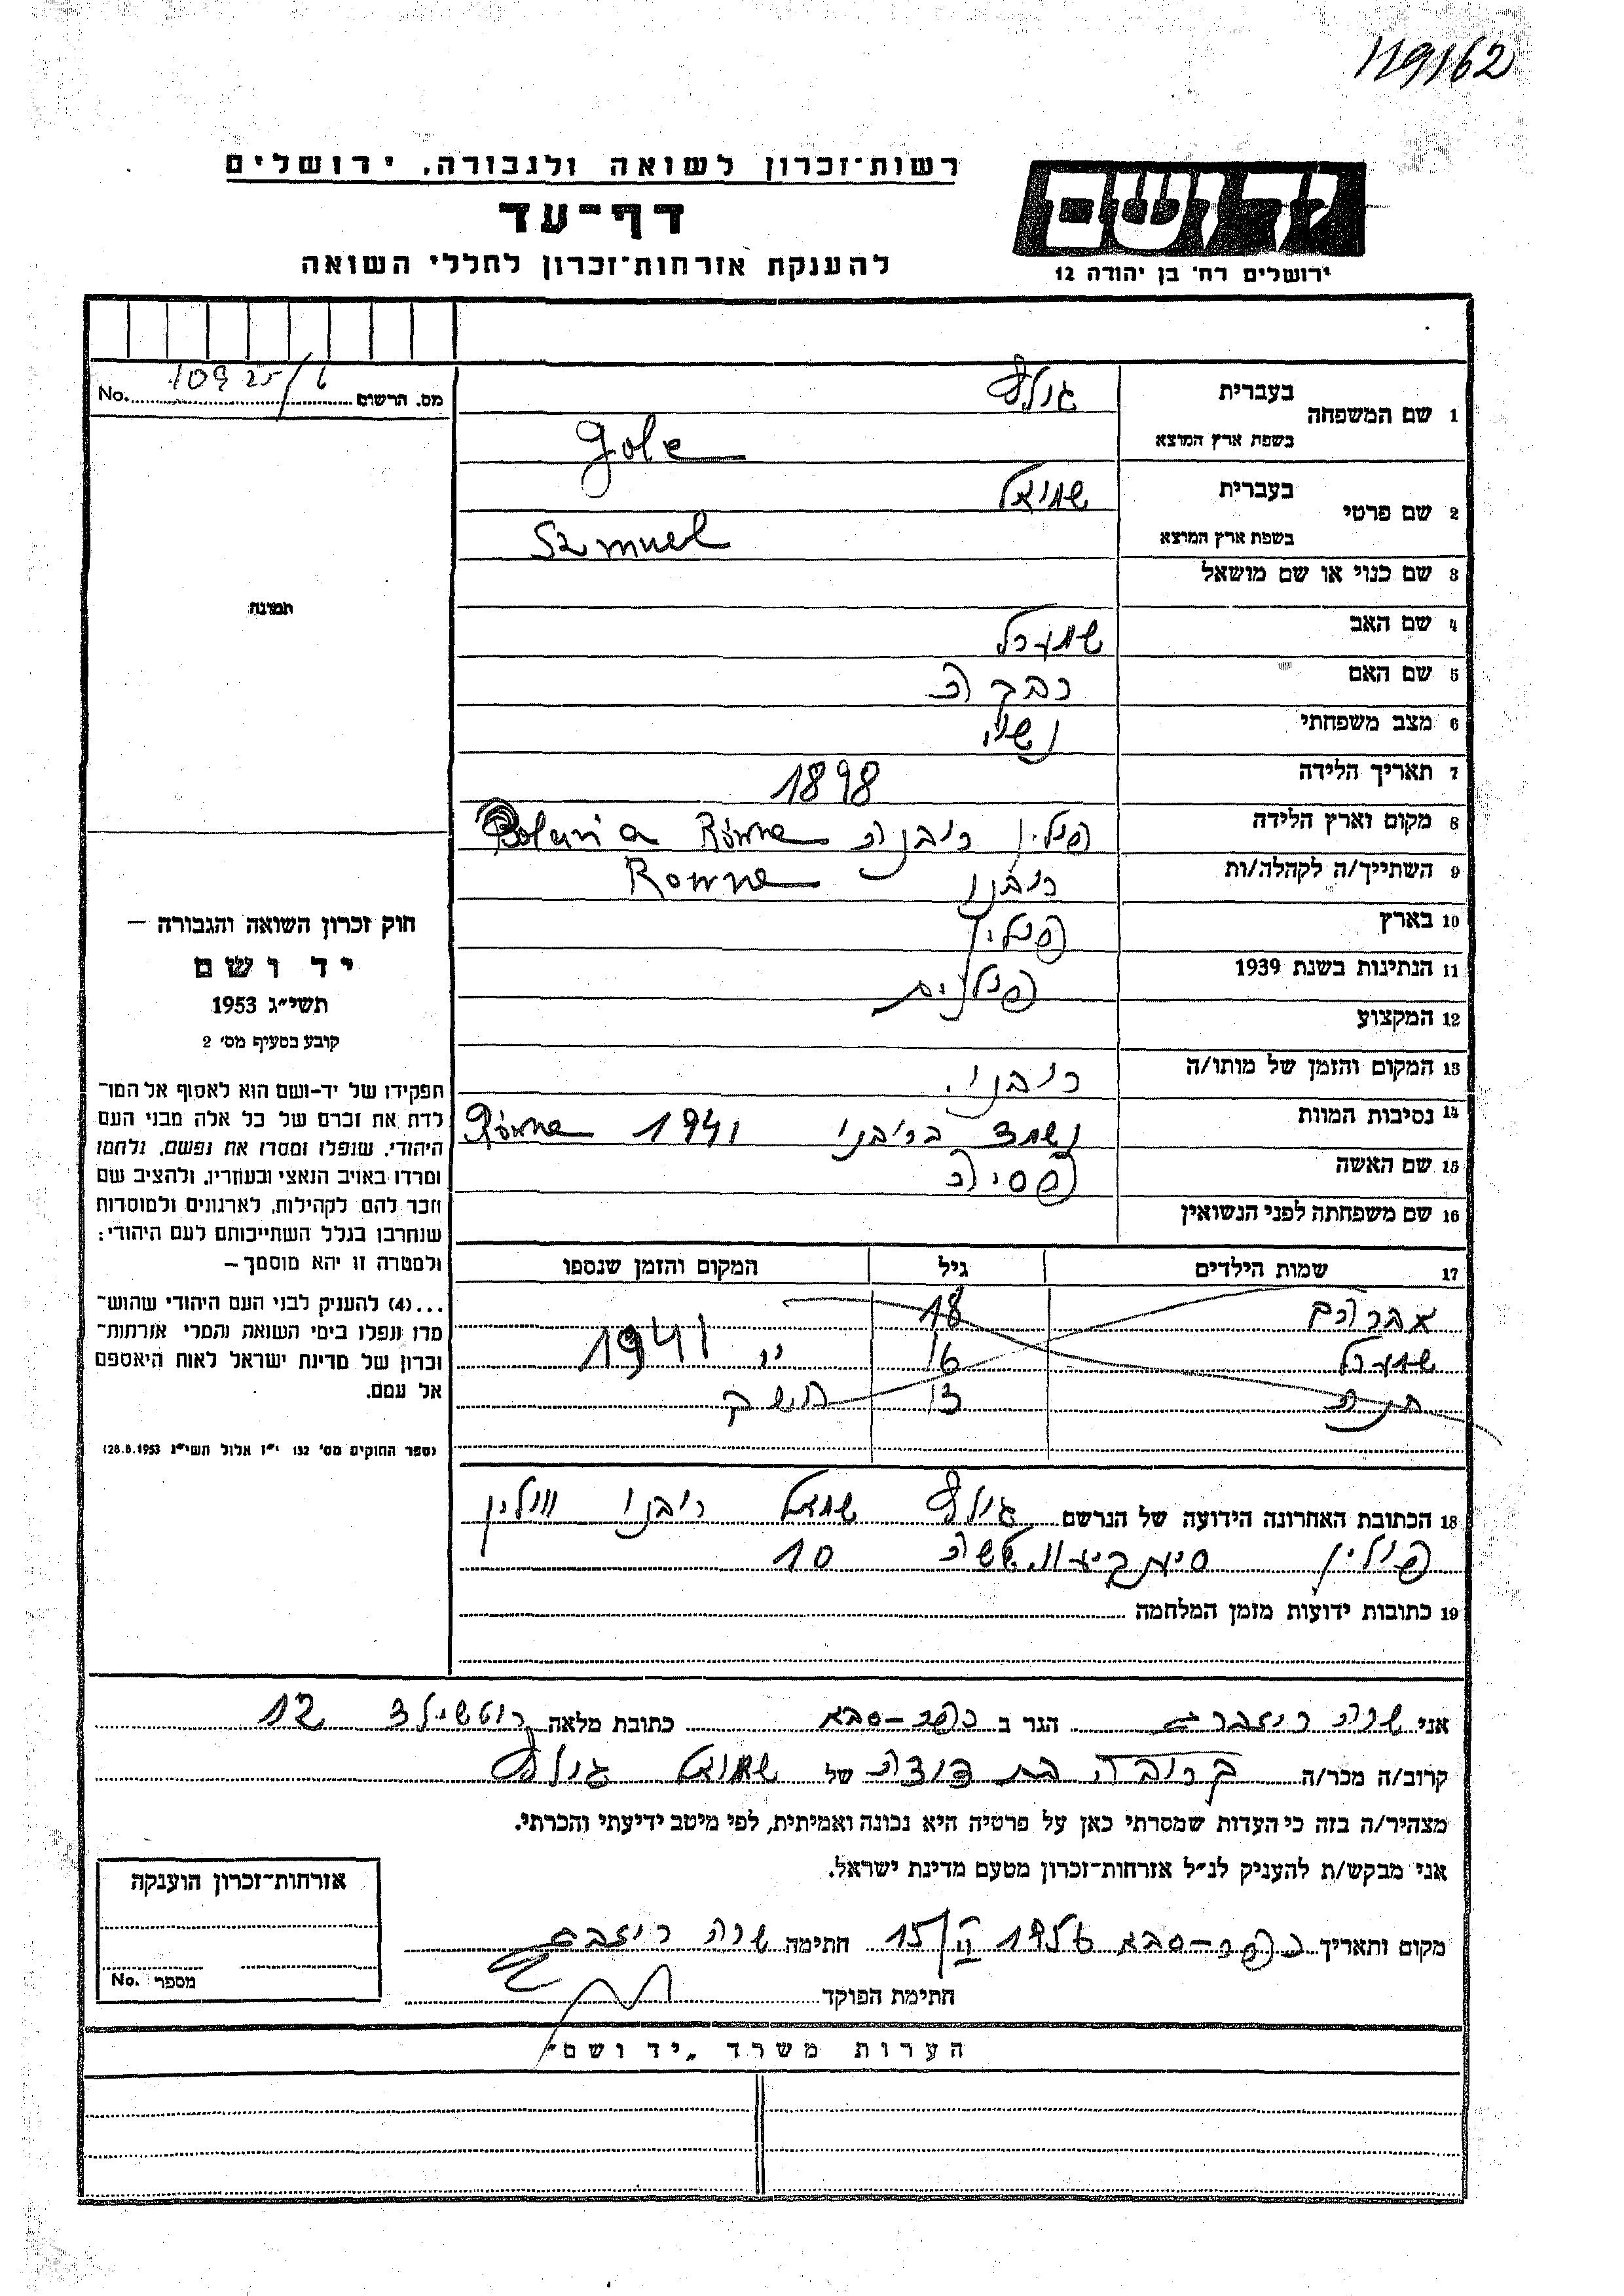 119162
רשות־זכרון לשואה ולגבורה, ירושלים
דף־עד
להענקת אזרחות־זכרון לחללי השואה
יד ושם
ירושלים רח׳ בן יהודה 12
No. 10925/6 מס. הרשום
1 שם המשפחה בעברית
בשפת ארץ המוצא Gole
2 שם פרטי בעברית שמואל
בשפת ארץ המוצא Szmuel
3 שם כנוי או שם מושאל
תמונה
4 שם האב
5 שם האם רבקה
6 מצב משפחתי נשוי
7 תאריך הלידה 1898
8 מקום וארץ הלידה פולין רובנה Polania Równe
9 השתייך/ה לקהלה/ות רובנו Rowne
10 בארץ פולין
11 הנתינות בשנת 1939 פולנית
12 המקצוע
13 המקום והזמן של מותו/ה רובנו.
14 נסיבות המוות נשמד ברובנו 1941 Równe
15 שם האשה פסיה
16 שם משפחתה לפני הנשואין
חוק זכרון השואה והגבורה —
יד ושם
תשי״ג 1953
קובע בסעיף מס׳ 2
תפקידו של יד־ושם הוא לאסוף אל המו־
לדת את זכרם של כל אלה מבני העם
היהודי, שנפלו ומסרו את נפשם, נלחמו
ומרדו באויב הנאצי ובעוזריו, ולהציב שם
וזכר להם לקהילות, לארגונים ולמוסדות
שנחרבו בגלל השתייכותם לעם היהודי;
ולמטרה זו יהא מוסמך —
...(4) להעניק לבני העם היהודי שהוש־
מדו ונפלו בימי השואה והמרי אזרחות־
זכרון של מדינת ישראל לאות היאספם
אל עמם.
(ספר החוקים מס׳ 132 י״ז אלול תשי״ג 28.8.1953)
17 שמות הילדים גיל המקום והזמן שנספו
אברהם 18
16 1941
חנה 13
18 הכתובת האחרונה הידועה של הנרשם שמואל רובנו ווילין
פולין 10
19 כתובות ידועות מזמן המלחמה
אני שרה ריזברג הגר ב כפר־סבא כתובת מלאה רוטשילד 12
קרוב/ה מכר/ה קרובה בת דודה של שמואל
מצהיר/ה בזה כי העדות שמסרתי כאן על פרטיה היא נכונה ואמיתית, לפי מיטב ידיעתי והכרתי.
אני מבקש/ת להעניק לנ״ל אזרחות־זכרון מטעם מדינת ישראל.
מקום ותאריך כפר־סבא 1956 חתימה שרה ריזברג
חתימת הפוקד
אזרחות־זכרון הוענקה
No. מספר
הערות משרד „יד ושם״